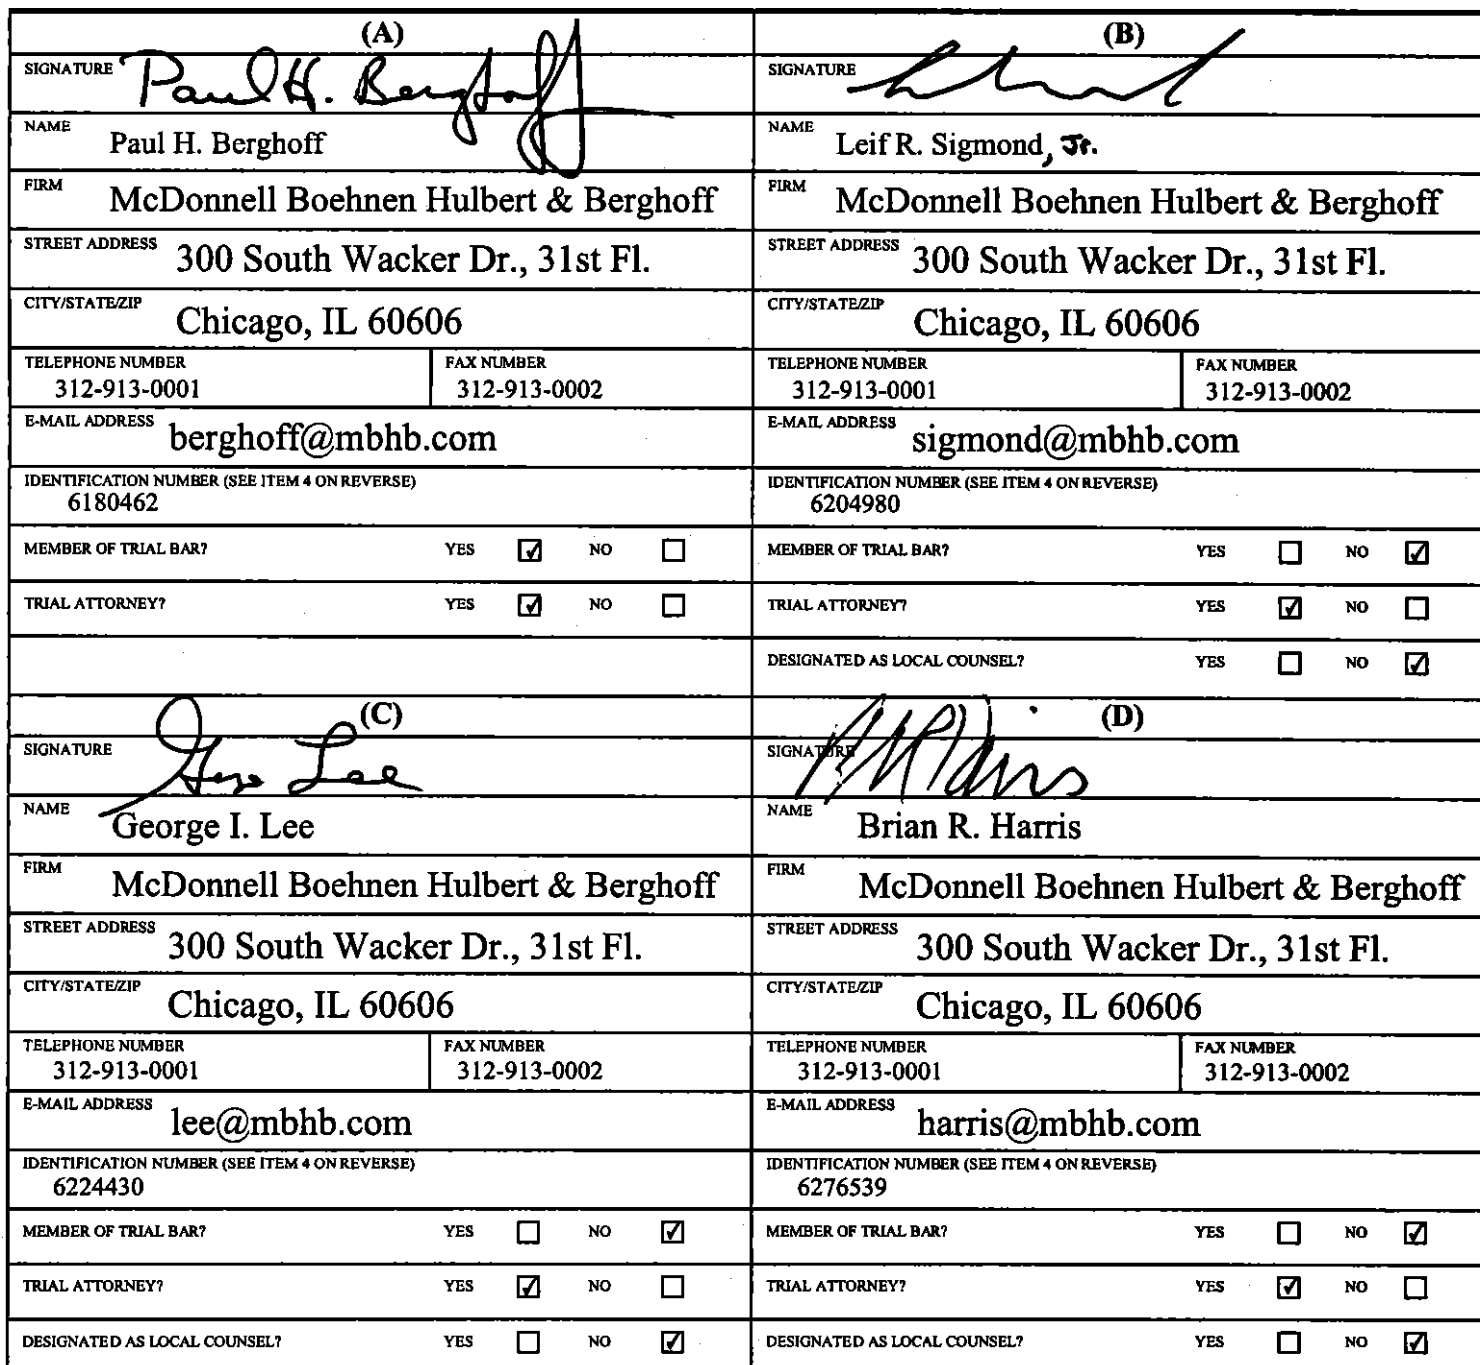 (A)
SIGNATURE Paul H. Berghoff
NAME Paul H. Berghoff
FIRM McDonnell Boehnen Hulbert & Berghoff
STREET ADDRESS 300 South Wacker Dr., 31st Fl.
CITY/STATE/ZIP Chicago, IL 60606
TELEPHONE NUMBER FAX NUMBER
312-913-0001 312-913-0002
E-MAIL ADDRESS berghoff@mbhb.com
IDENTIFICATION NUMBER (SEE ITEM 4 ON REVERSE)
6180462
MEMBER OF TRIAL BAR? YES ☑ NO ☐
TRIAL ATTORNEY? YES ☑ NO ☐
(B)
SIGNATURE
NAME Leif R. Sigmond, Jr.
FIRM McDonnell Boehnen Hulbert & Berghoff
STREET ADDRESS 300 South Wacker Dr., 31st Fl.
CITY/STATE/ZIP Chicago, IL 60606
TELEPHONE NUMBER FAX NUMBER
312-913-0001 312-913-0002
E-MAIL ADDRESS sigmond@mbhb.com
IDENTIFICATION NUMBER (SEE ITEM 4 ON REVERSE)
6204980
MEMBER OF TRIAL BAR? YES ☐ NO ☑
TRIAL ATTORNEY? YES ☑ NO ☐
DESIGNATED AS LOCAL COUNSEL? YES ☐ NO ☑
(C)
SIGNATURE Lee
NAME George I. Lee
FIRM McDonnell Boehnen Hulbert & Berghoff
STREET ADDRESS 300 South Wacker Dr., 31st Fl.
CITY/STATE/ZIP Chicago, IL 60606
TELEPHONE NUMBER FAX NUMBER
312-913-0001 312-913-0002
E-MAIL ADDRESS lee@mbhb.com
IDENTIFICATION NUMBER (SEE ITEM 4 ON REVERSE)
6224430
MEMBER OF TRIAL BAR? YES ☐ NO ☑
TRIAL ATTORNEY? YES ☑ NO ☐
DESIGNATED AS LOCAL COUNSEL? YES ☐ NO ☑
(D)
SIGNATURE
NAME Brian R. Harris
FIRM McDonnell Boehnen Hulbert & Berghoff
STREET ADDRESS 300 South Wacker Dr., 31st Fl.
CITY/STATE/ZIP Chicago, IL 60606
TELEPHONE NUMBER FAX NUMBER
312-913-0001 312-913-0002
E-MAIL ADDRESS harris@mbhb.com
IDENTIFICATION NUMBER (SEE ITEM 4 ON REVERSE)
6276539
MEMBER OF TRIAL BAR? YES ☐ NO ☑
TRIAL ATTORNEY? YES ☑ NO ☐
DESIGNATED AS LOCAL COUNSEL? YES ☐ NO ☑